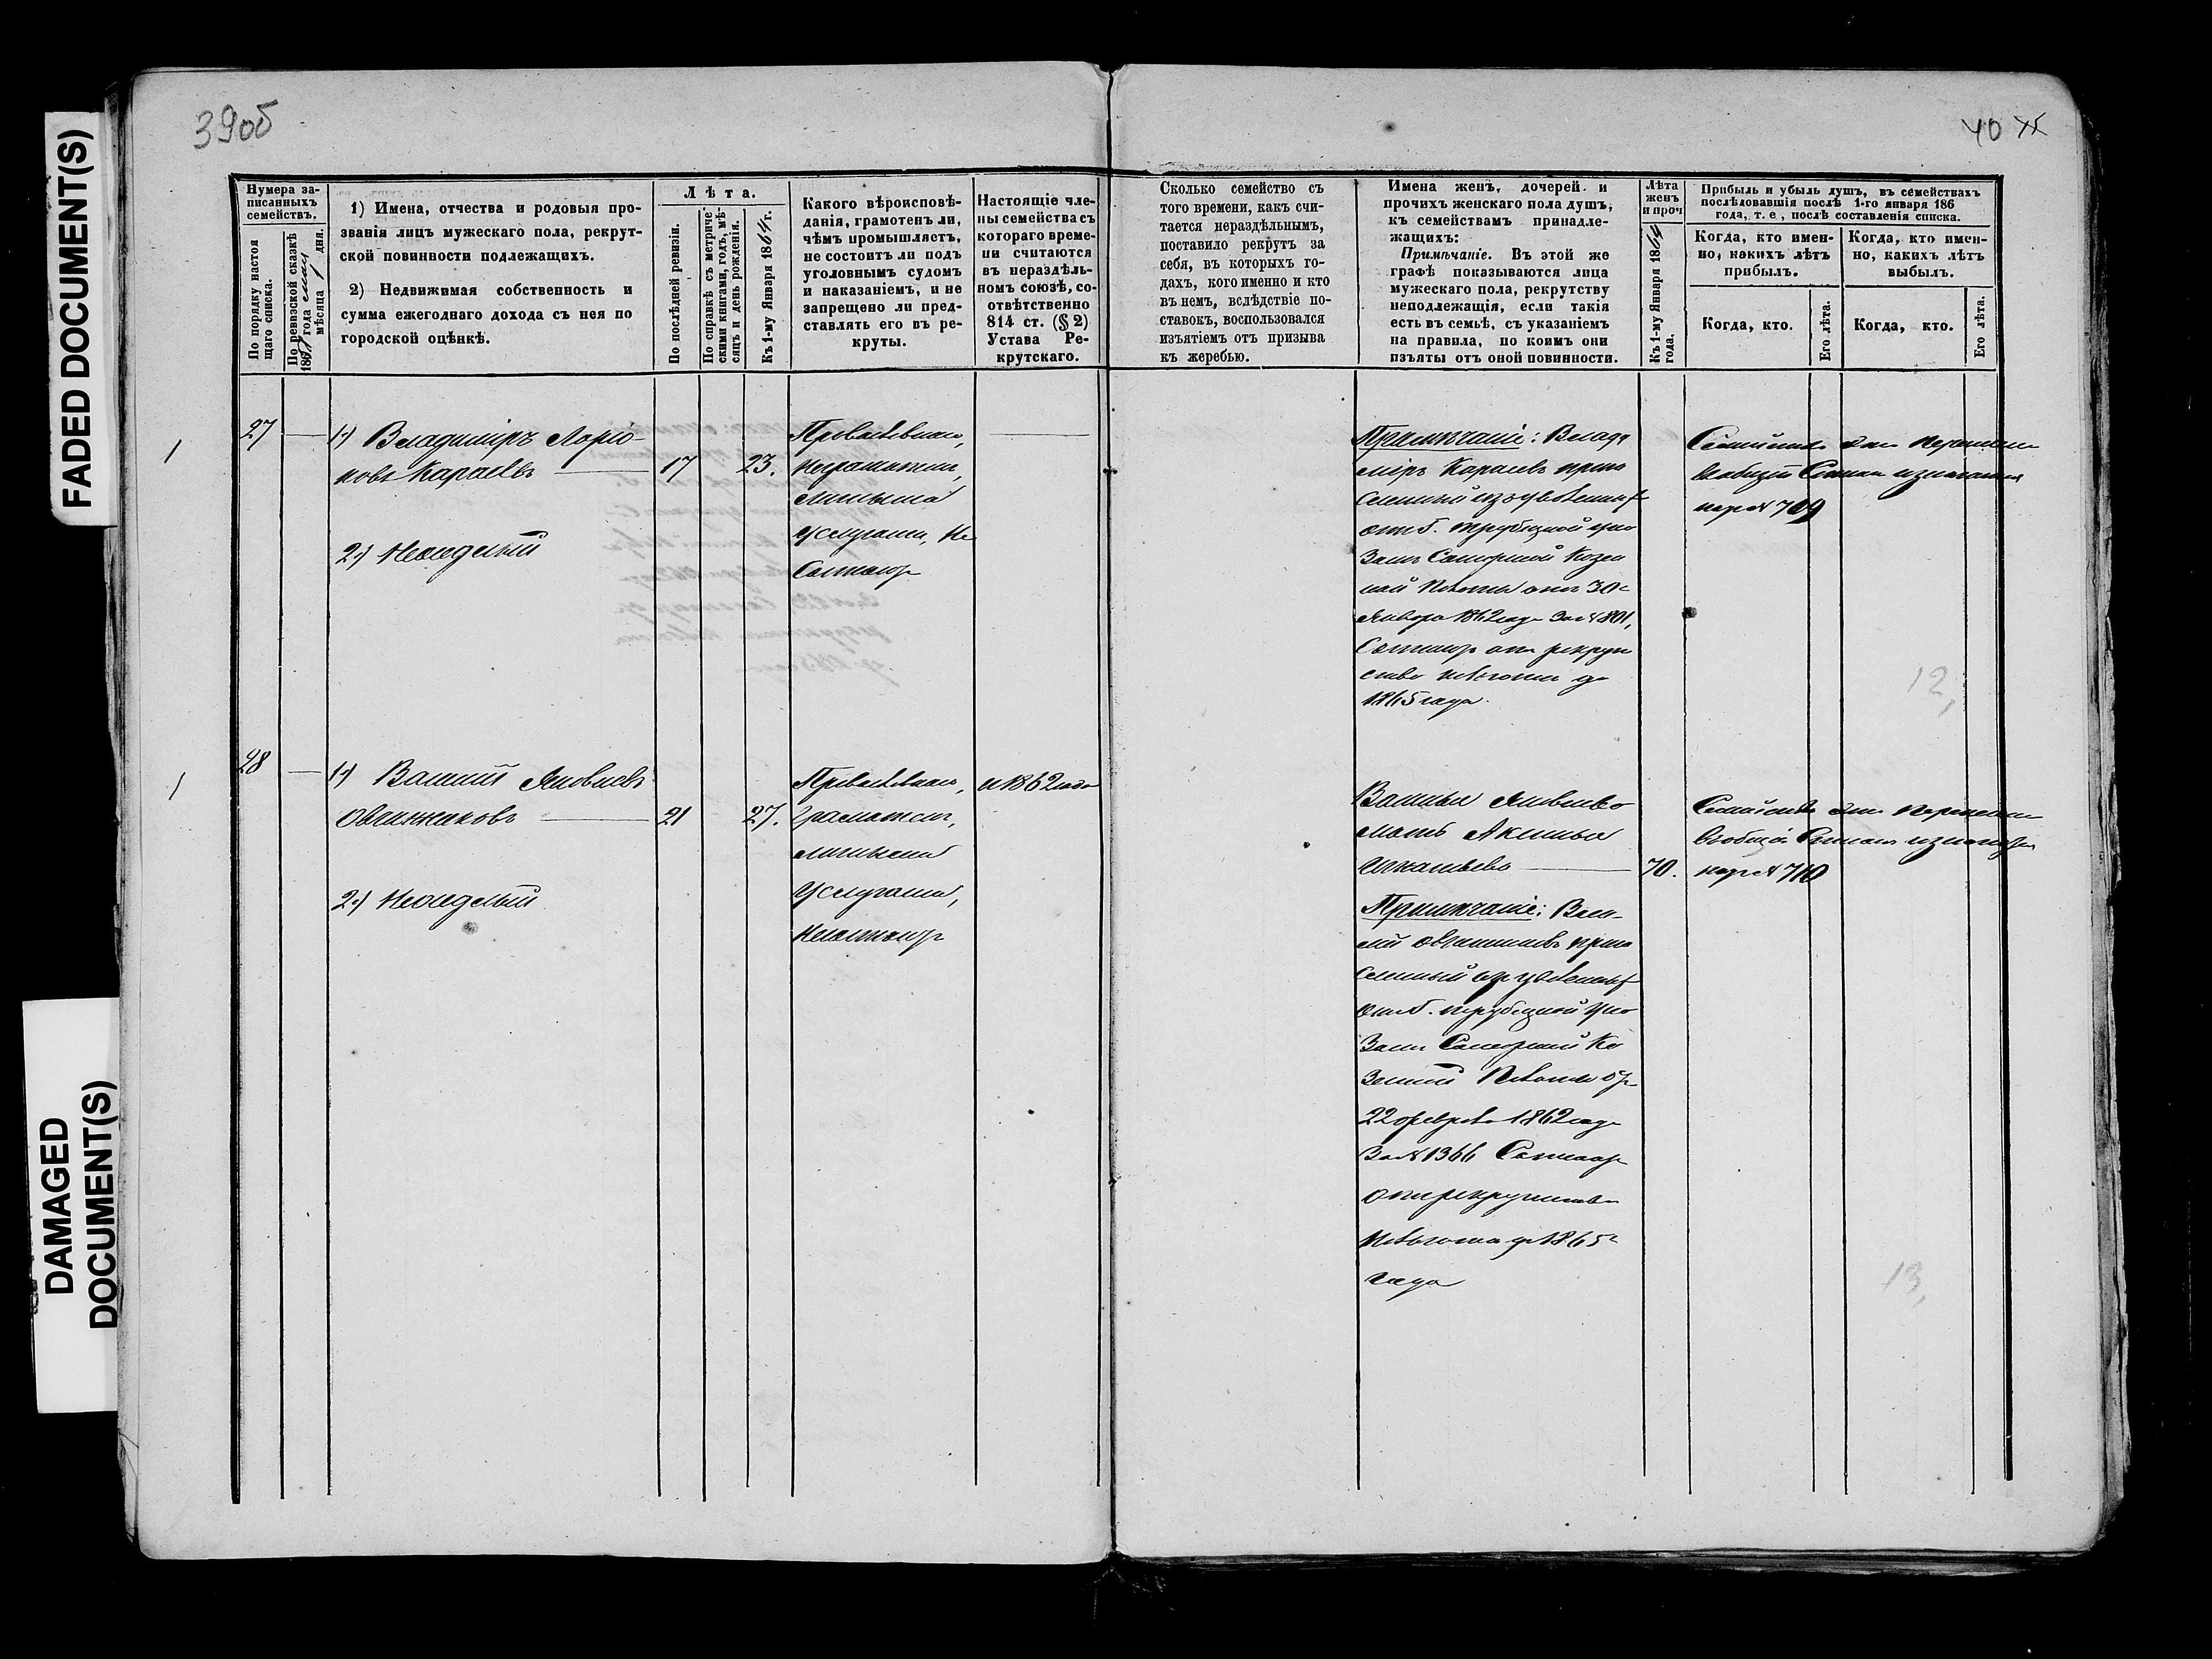 FADED DOCUMENT(S)
DAMAGED
DOCUMENT(S)
39об
40
Нумера за-
писанныхъ
семействъ.
По порядку настоя
щаго списка.
По ревизской сказкѣ
года
мѣсяца 1 дня.
1) Имена, отчества и родовыя про-
званія лицъ мужескаго пола, рекрут-
ской повинности подлежащихъ.
2) Недвижимая собственность и
сумма ежегоднаго дохода съ нея по
городской оцѣнкѣ.
Лѣта.
По послѣдней ревизіи.
По справкѣ съ метриче-
скими книгами, годъ, мѣ-
сяцъ и день рожденія.
Къ 1-му Января 1864 г.
Какого вѣроисповѣ-
данія, грамотенъ ли,
чѣмъ промышляетъ,
не состоитъ ли подъ
уголовнымъ судомъ
и наказаніемъ, и не
запрещено ли пред-
ставлять его въ ре-
круты.
Настоящіе чле-
ны семейства съ
котораго време-
ни считаются
въ нераздѣль-
номъ союзѣ, со-
отвѣтственно
814 ст. (§ 2)
Устава Ре-
крутскаго.
Сколько семейство съ
того времени, какъ счи-
тается нераздѣльнымъ,
поставило рекрутъ за
себя, въ которыхъ го-
дахъ, кого именно и кто
въ немъ, вслѣдствіе по-
ставокъ, воспользовался
изъятіемъ отъ призыва
къ жеребью.
Имена женъ, дочерей и
прочихъ женскаго пола душъ,
къ семействамъ принадле-
жащихъ:
Примѣчаніе. Въ этой же
графѣ показываются лица
мужескаго пола, рекрутству
неподлежащія, если такія
есть въ семьѣ, съ указаніемъ
на правила, по коимъ они
изъяты отъ оной повинности.
Лѣта
женъ
и проч
Къ 1-му Января 1864
года.
Прибыль и убыль душъ, въ семействахъ
послѣдовавшія послѣ 1-го января 186
года, т. е., послѣ составленія списка.
Когда, кто имен-
но, какихъ лѣтъ
прибылъ.
Когда, кто имен-
но, какихъ лѣтъ
выбылъ.
Когда, кто.
Его лѣта.
Когда, кто.
Его лѣта.
27
1) Владиміръ Ларіо-
новъ Караевъ 17 23.
2) Неоседлый
Православнаго,
Неграмотенъ,
личными
Услугами, не
Состоитъ
Примѣчаніе: Влади
міръ Караевъ причи
сленный изъ
Казен
ной Палаты отъ 30
Января 1862 года за № 801,
Состоитъ отъ рекрут
ства до
1865 года.
Семейство это
въ общій
под № 709
12,
28
1) Василій Яковлевъ
Овчинниковъ 21 27.
2) Неоседлый
Православнаго,
Грамотенъ,
личными
Услугами,
Несостоитъ
съ 1862 года
Василья Яковлева
мать Аксинья
Игнатьева 70.
Примѣчаніе: Васи-
лій Овчинниковъ причи
сленный
Ка
зенной Палаты отъ
22 февраля 1862 года
за № 1366 Состоитъ
отъ рекрутства
до 1865
года
Семейство это
въ общій
под № 710
13,